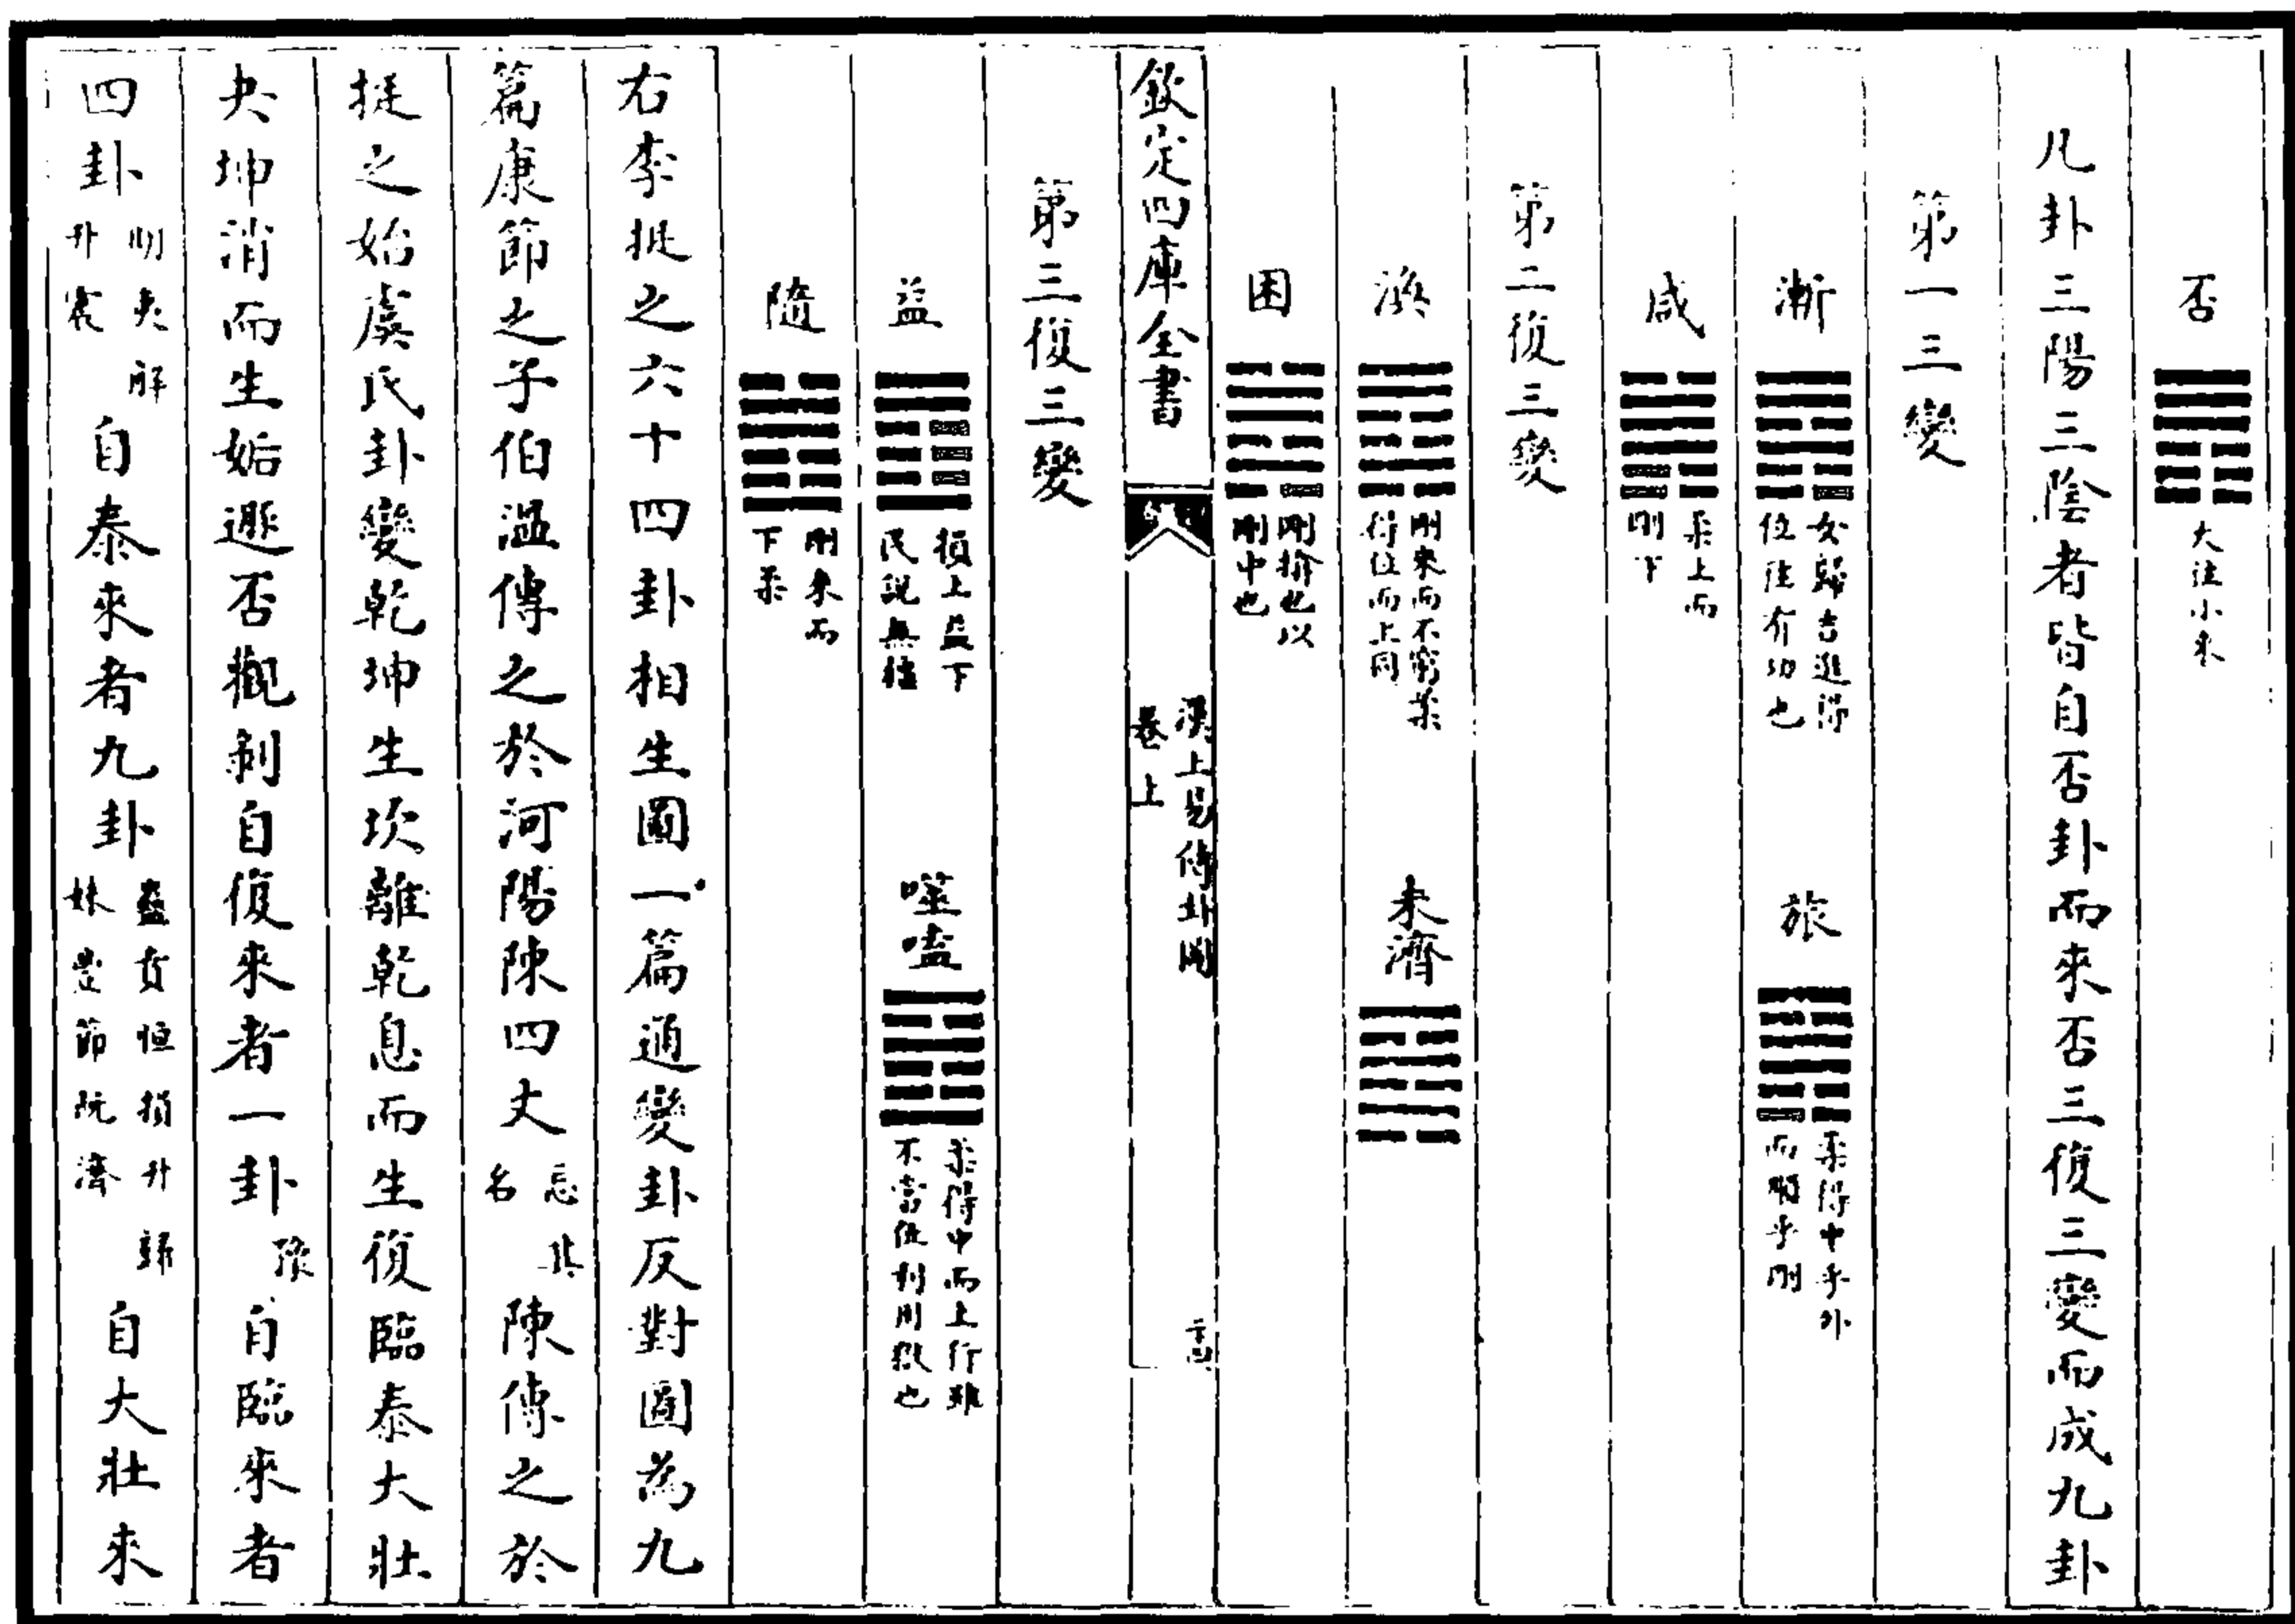 否 大往小來
凡卦三陽三陰者皆自否卦而來否三復三變而成九卦
第一三變
漸 女歸吉進得位往有功也 旅 柔得中乎外而順乎剛
咸 柔上而剛下
第二復三變
渙 剛來而不窮柔得位而上同 未濟
困 剛揜也以剛中也
欽定四庫全書 漢上易傳卦圖 卷上
第三復三變
益 損上益下民說無疆 噬嗑 柔得中而上行雖不當位利用獄也
隨 剛來而下柔
右李挺之六十四卦相生圖一篇通變卦反對圖為九
篇康節之子伯溫傳之於河陽陳四丈忘其名陳傳之於
挺之始虞氏卦變乾坤生坎離乾息而生復臨泰大壯
夬坤消而生姤遯否觀剝自復來者一卦豫自臨來者
四卦明夷解升震自泰來者九卦蠱賁恒損升歸妹豐節旣濟自大壯來